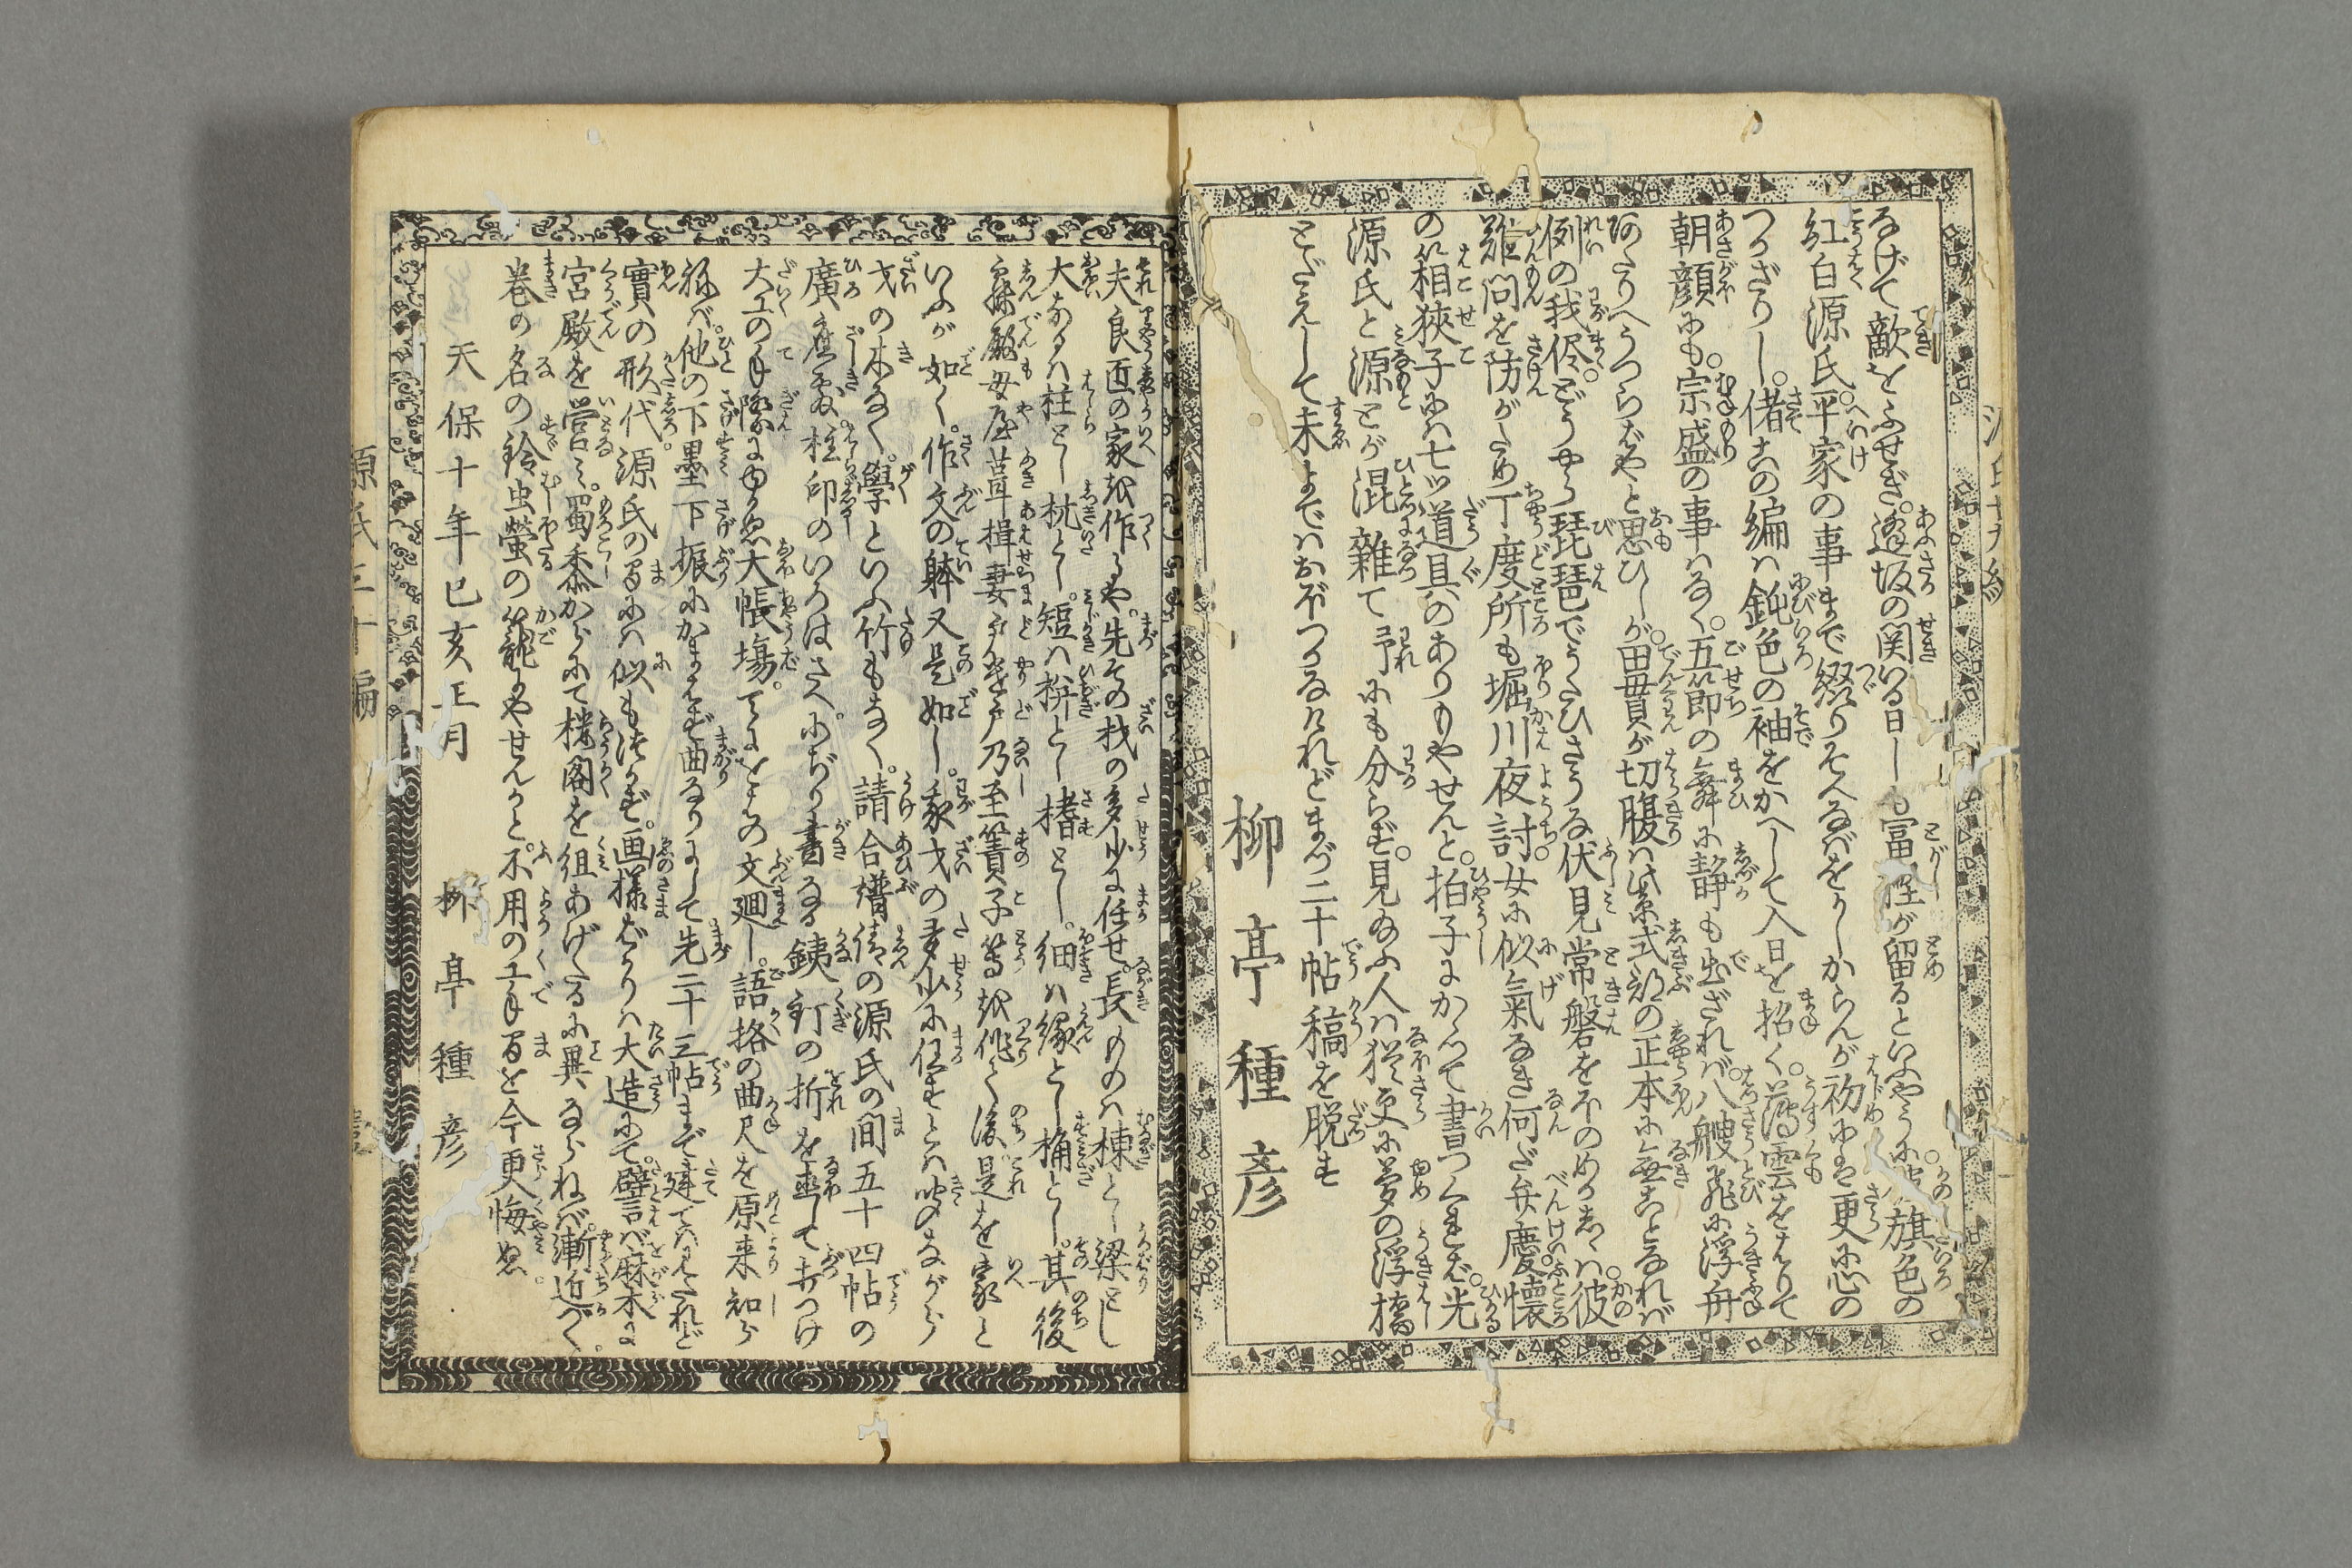 なげて敵をふせぎ。逢坂の関いる日しも富樫が留るといふやうに。彼旗色の
紅白源氏。平家の事まで綴りそへなばをかしからんが初にも更に心の
つかざりし。偖この編は鈍色の袖をかへして入日を招く。薄雲をはりて
朝顔にも。宗盛の事はなく。五節の舞に静も出ざれば。八艘飛に浮舟
のたりへうつらばやと思ひしが。田舎が切腹は紫式部の正本に無ことなれば
例の我侭。どうやら琵琶でうたひさうな伏見常磐をほのめかしゝは。彼
難問を防がため丁度所も堀川夜討。女に似氣なき何ど弁慶。懐
の箱狭子には七ッ道具のありもやせんと。拍子にかゝつて書つくれど。光
源氏と源とが混雑て予にも分らず。見ゐふ人は猶更に夢の浮橋
とだえして末まではおぼつかなけれどまづ二十帖稿を脱す
柳亭種彦
夫良匠の家を作るや。先その材の多少に任せ。長ものは棟とし梁とし
大なるは柱とし杭とし。短は枅とし楮とし。細は縁とし桷とし。其後
寝殿母屋葺揖妻戸遣戸乃至簀子等を作りて後是を家と
いふが如く。作文の躰又是如し。我才の多少に任すとは聞ながら
才の木なく。學といふ竹もなく。請合普請の源氏の間五十四帖の
廣座敷。柱印のいろはさへ。にぢり書なる銕釘の折を直して打つけ
大工の手際にゆかぬ大帳場。てにをはの文廻し。語格の曲尺を原来知ら
ねば。他の下墨下振にかまはず曲なりにして先二十三帖まで建てはみたれど
實の形代源氏の間には似も付かず。画様ばかりは大造にて。譬言ば麻木に
宮殿を営み。蜀黍がらにて楼閣を組あげたるに異ならねば。漸近く。
巻の名の鈴虫螢の籠にやせんかと。不用の工手間を今更悔ぬ。
天保十年己亥正月
柳亭種彦
源氏二十編